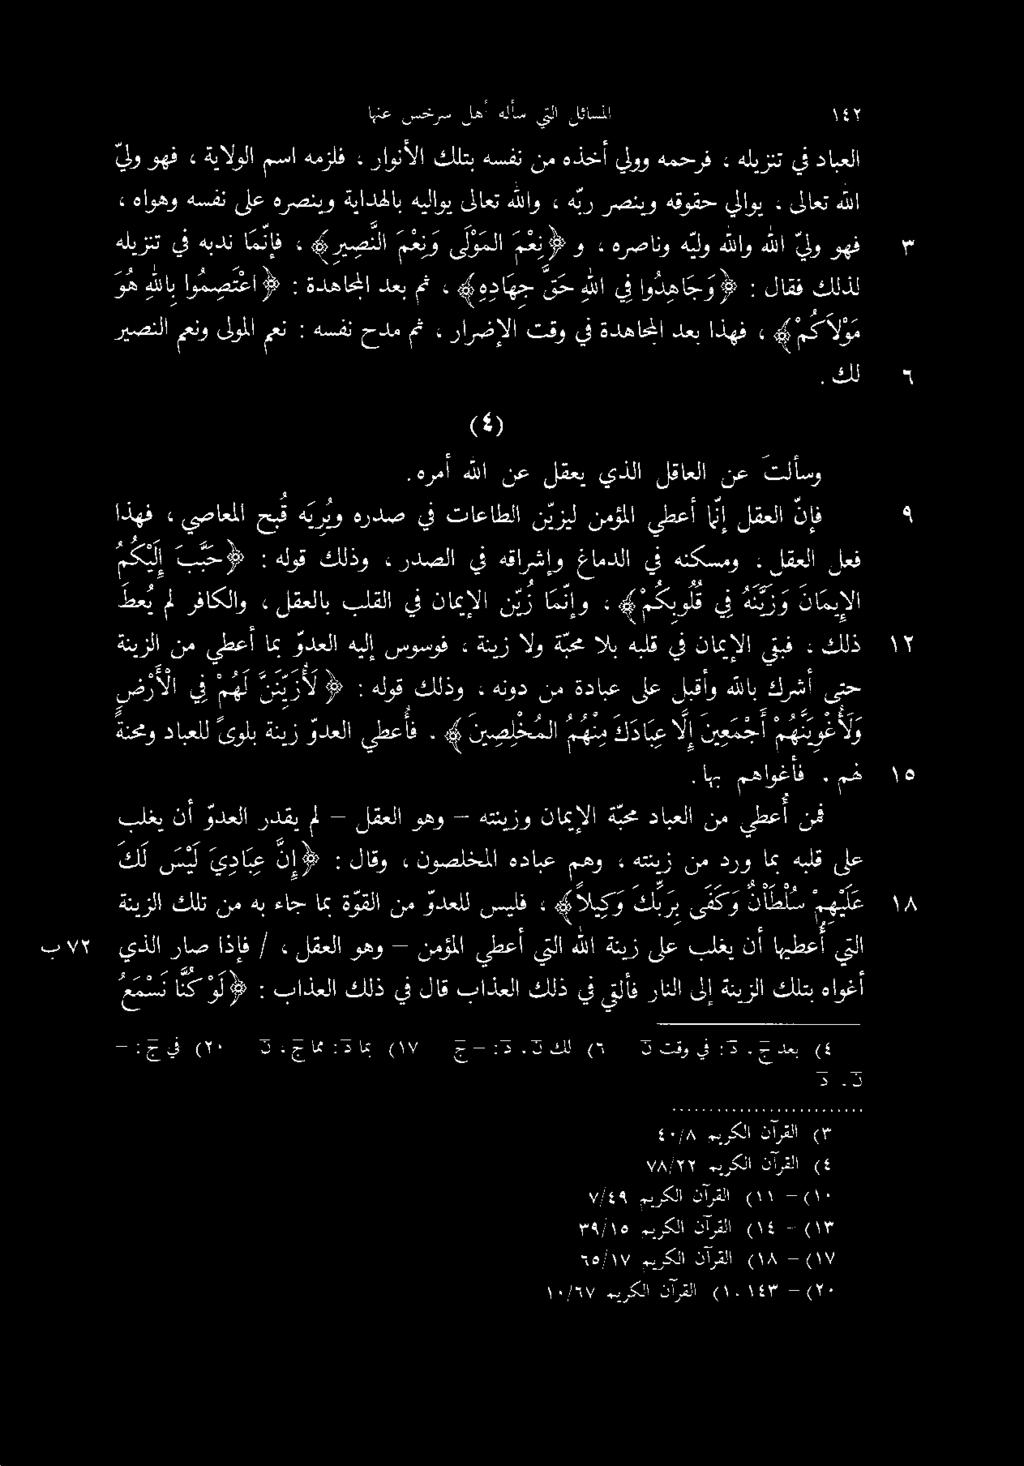 ١٤٢ المسائل التي سأله أهل سرخس عنها
العباد في تنزيله ، فرحمه وولي أخذه من نفسه بتلك الأنوار ، فلزمه اسم الولاية ، فهو وليّ
الله تعالى ، يوالي حقوقه وينصر ربّه ، والله تعالى يواليه بالهداية وينصره على نفسه وهواه ،
٣ فهو وليّ الله والله وليّه وناصره ، و ﴿نِعْمَ المَوْلَى وَنِعْمَ النَّصِيرِ﴾ ، فإنّما ندبه في تنزيله
لذلك فقال : ﴿وَجَاهِدُوا فِي اللهِ حَقَّ جِهَادِهِ﴾ ، ثم بعد المجاهدة : ﴿اعْتَصِمُوا بِاللهِ هُوَ
مَوْلاَكُمْ﴾ ، فهذا بعد المجاهدة في وقت الإضرار ، ثم مدح نفسه : نعم المولى ونعم النصير
٦ لك .
(٤)
وسألتَ عن العاقل الذي يعقل عن الله أمره .
٩ فإنّ العقل إنّما أعطي المؤمن ليزيّن الطاعات في صدره ويُرِيَه قُبح المعاصي ، فهذا
فعل العقل ، ومسكنه في الدماغ وإشراقه في الصدر ، وذلك قوله : ﴿حَبَّبَ إِلَيْكُمُ
الإِيمَانَ وَزَيَّنَهُ فِي قُلُوبِكُمْ﴾ ، وإنّما زُيّن الإيمان في القلب بالعقل ، والكافر لم يُعطَ
١٢ ذلك ، فبقي الإيمان في قلبه بلا محبّة ولا زينة ، فوسوس إليه العدوّ بما أعطي من الزينة
حتى أشرك بالله وأقبل على عبادة من دونه ، وذلك قوله : ﴿لَأُزَيِّنَنَّ لَهُمْ فِي الْأَرْضِ
وَلَأُغْوِيَنَّهُمْ أَجْمَعِينَ إِلَّا عِبَادَكَ مِنْهُمُ المُخْلِصِينَ﴾ . فأُعطي العدوّ زينة بلوىً للعباد ومحنةً
١٥ لهم . فأغواهم بها .
فمن أُعطي من العباد محبّة الإيمان وزينته – وهو العقل – لم يقدر العدوّ أن يغلب
على قلبه بما ورد من زينته ، وهم عباده المخلصون ، وقال : ﴿إِنَّ عِبَادِيَ لَيْسَ لَكَ
١٨ عَلَيْهِمْ سُلْطَانٌ وَكَفَى بِرَبِّكَ وَكِيلاً﴾ ، فليس للعدوّ من القوّة بما جاء به من تلك الزينة
التي أُعطيها أن يغلب على زينة الله التي أعطي المؤمن – وهو العقل ، / فإذا صار الذي ٧٢ ب
أغواه بتلك الزينة إلى النار فألقي في ذلك العذاب قال في ذلك العذاب : ﴿لَوْ كُنَّا نَسْمَعُ
٤) بعد ج ، د: في وقت ن ٦) لك ن ، د: – ج ١٧) بما د: مما ج ، ن ٢٠) في ج: –
ن ، د
٣) القرآن الكريم ٤٠/٨
٤) القرآن الكريم ٧٨/٢٢
١٠) – ١١) القرآن الكريم ٧/٤٩
١٣) – ١٤) القرآن الكريم ٣٩/١٥
١٧) – ١٨) القرآن الكريم ٦٥/١٧
٢٠) – ١٤٣ ، ١) القرآن الكريم ١٠/٦٧